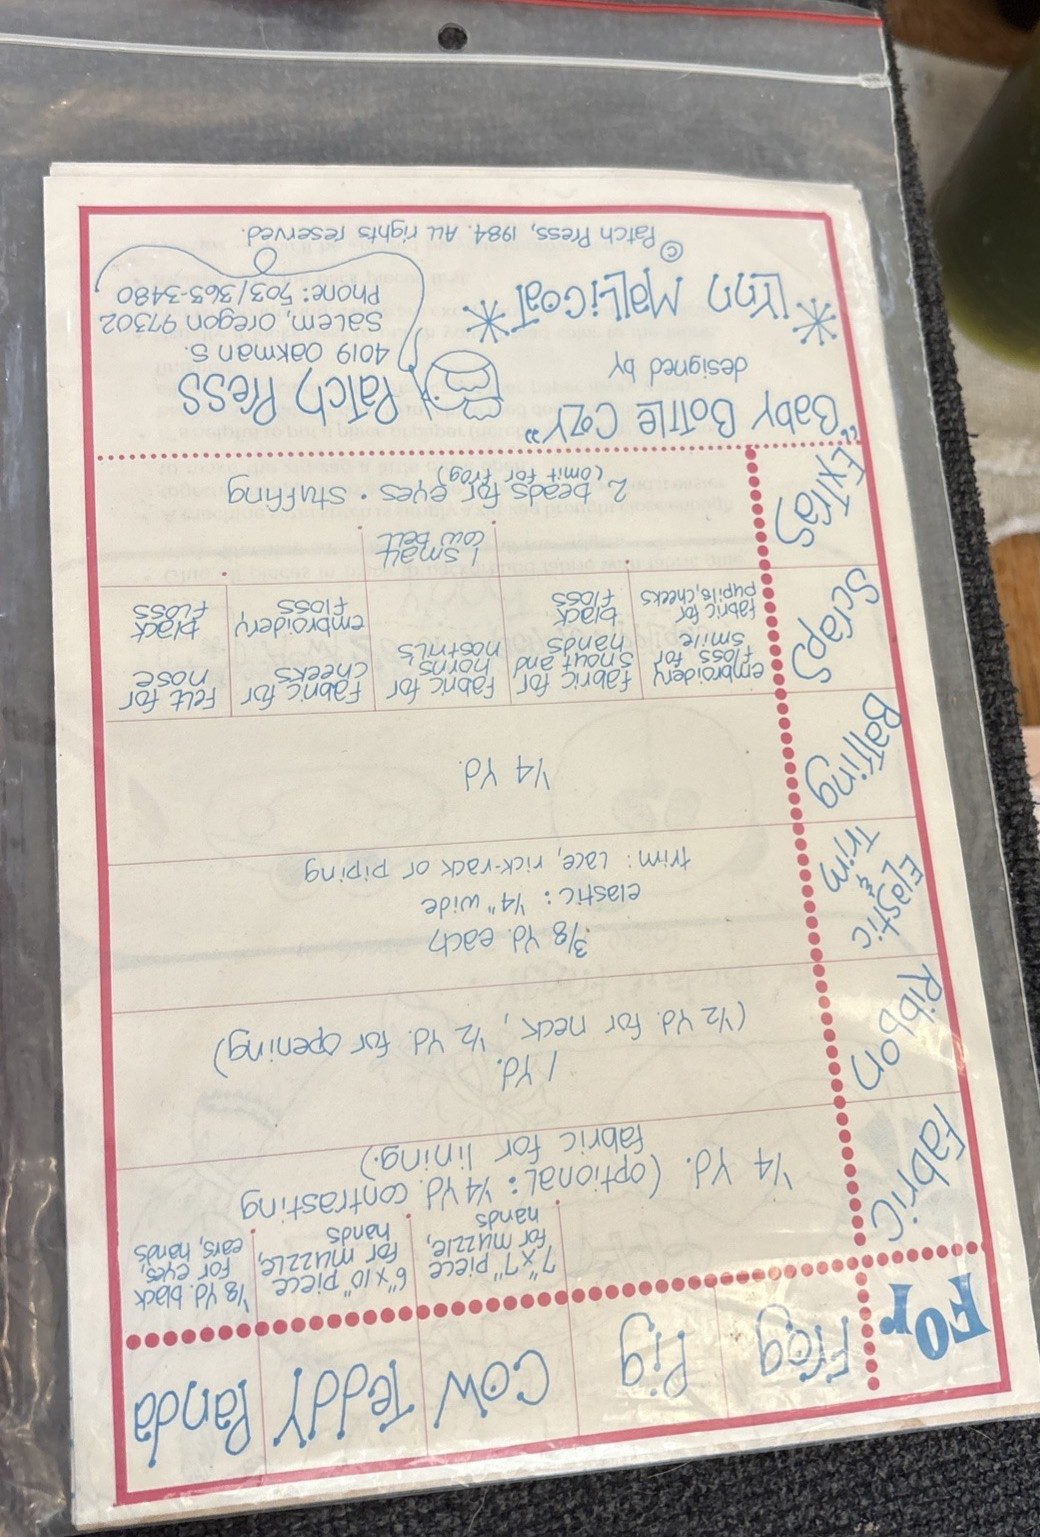 For Frog Pig Cow Teddy Panda
Fabric
7" x 7" piece for muzzle, hands
6" x 10" piece for muzzle, hands
1/8 yd. black for eyes, ears, hands
1/4 yd. (optional: 1/4 yd. contrasting
fabric for lining.)
Ribbon
1 yd.
(1/2 yd. for neck, 1/2 yd. for opening)
Elastic
&
Trim
3/8 yd. each
elastic: 1/4" wide
trim: lace, rick-rack or piping
Batting
1/4 yd.
Scraps
embroidery
floss for
smile
fabric for
pupils, cheeks
fabric for
snout and
hands
black
floss
fabric for
horns
nostrils
1 small
cow bell
fabric for
cheeks
embroidery
floss
felt for
nose
black
floss
Extras
2 beads for eyes • stuffing
(omit for frog)
"Baby Bottle Cozy"
designed by
Lynn Mallicoat
© Patch Press, 1984. All rights reserved.
Patch Press
4019 Oakman S.
Salem, Oregon 97302
Phone: 503/363-3480